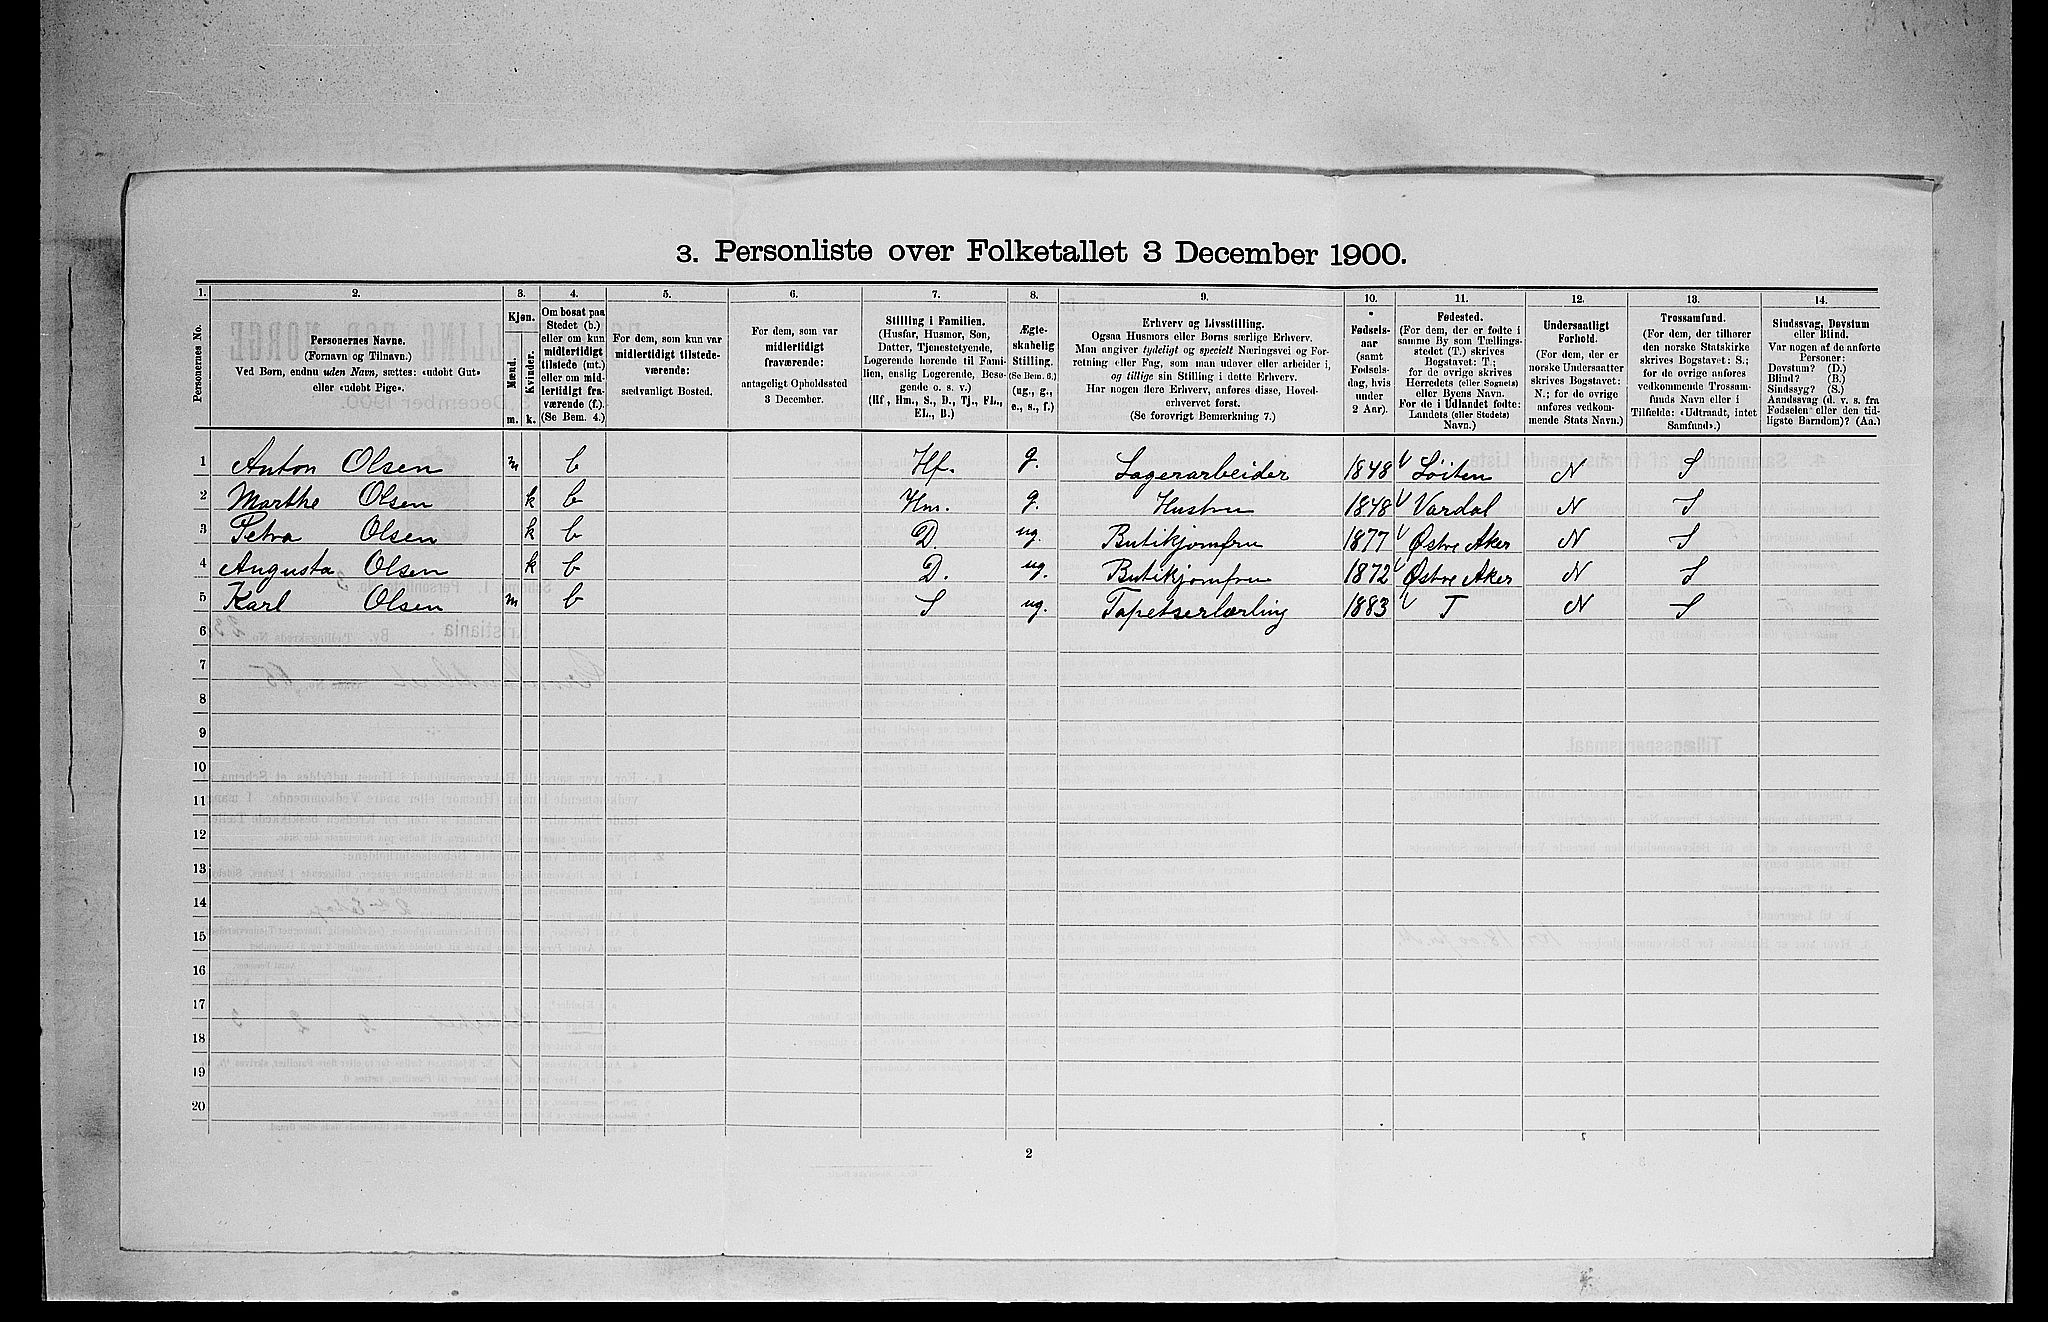 3. Personliste over Folketallet 3 December 1900.
1. 2. 3. 4. 5. 6. 7. 8. 9. 10. 11. 12. 13. 14.
Personernes No.
Personernes Navne.
(Fornavn og Tilnavn.)
Ved Børn, endnu uden Navn, sættes: «udøbt Gut»
eller «udøbt Pige».
Kjøn.
Mænd.
Kvinder.
m. k.
Om bosat paa
Stedet (b.)
eller om kun
midlertidigt
tilstede (mt.)
eller om mid-
lertidigt fra-
værende (f.)
(Se Bem. 4.)
For dem, som kun var
midlertidigt tilstede-
værende:
sædvanligt Bosted.
For dem, som var
midlertidigt
fraværende:
antageligt Opholdssted
3 December.
Stilling i Familien.
(Husfar, Husmor, Søn,
Datter, Tjenestetyende,
Logerende hørende til Fami-
lien, enslig Logerende, Besø-
gende o. s. v.)
(Hf., Hm., S., D., Tj., FL.,
EL., B.)
Ægte-
skabelig
Stilling.
(Se Bem. 6.)
(ug., g.,
e., s., f.)
Erhverv og Livsstilling.
Ogsaa Husmors eller Børns særlige Erhverv.
Man angiver tydeligt og specielt Næringsvei og For-
retning eller Fag, som man udøver eller arbeider i,
og tillige sin Stilling i dette Erhverv.
Har nogen flere Erhverv, anføres disse, Hoved-
erhvervet først.
(Se forøvrigt Bemerkning 7.)
Fødsels-
aar
(samt
Fødsels-
dag, hvis
under
2 Aar).
Fødested.
(For dem, der er fødte i
samme By som Tællings-
stedet (T.) skrives
Bogstavet: T.;
for de øvrige skrives
Herredets (eller Sognets)
eller Byens Navn.
For de i Udlandet fødte:
Landets (eller Stedets)
Navn.)
Undersaatligt
Forhold.
(For dem, der er
norske Undersaatter
skrives Bogstavet:
N.; for de øvrige
anføres vedkom-
mende Stats Navn.)
Trossamfund.
(For dem, der tilhører
den norske Statskirke
skrives Bogstavet: S.;
for de øvrige anføres
vedkommende Trossam-
funds Navn eller i
Tilfælde: «Udtraadt, intet
Samfund».)
Sindssvag, Døvstum
eller Blind.
Var nogen af de anførte
Personer:
Døvstum? (D.)
Blind? (B.)
Sindssyg? (S.)
Aandssvag (d. v. s. fra
Fødselen eller den tid-
ligste Barndom)? (Aa.)
1 Anton Olsen m b Hf. g. Lagerarbeider 1848 Löiten N S
2 Marthe Olsen k b Hm. g. Hustru 1848 Vardal N S
3 Petra Olsen k b D. ug. Butikjomfru 1877 Østre Aker N S
4 Augusta Olsen k b D. ug. Butikjomfru 1872 Østre Aker N S
5 Karl Olsen m b S ug. Tapetserlærling 1883 T N S
6
7
8
9
10
11
12
13
14
15
16
17
18
19
20
2